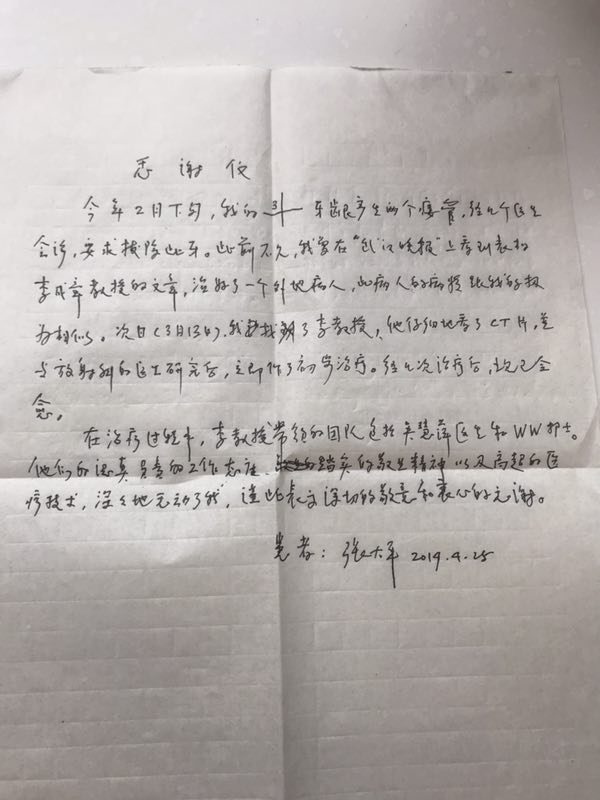 感谢信
今年2月下旬，我的 3 牙龈产生两个瘘管，经几个医生
会诊，要求拔除此牙。此前不久，我曾在"武汉晚报"上看到表扬
李成章教授的文章，治好了一个外地病人，此病人的病情跟我的极
为相似。次日（3月13日），我找到了李教授，他仔细地看了CT片，并
与放射科的医生研究后，立即作了初步治疗。经几次治疗后，现已全
愈。
在治疗过程中，李教授带领的团队包括吴慧萍医生和WW护士。
他们的认真负责的工作态度 踏实的敬业精神以及高超的医
疗技术，深深地感动了我，谨此表示深切的敬意和衷心的感谢。
患者：张大年 2019.4.25